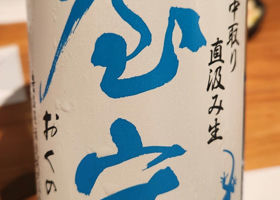 中取り
直汲み生
屋守
おくの